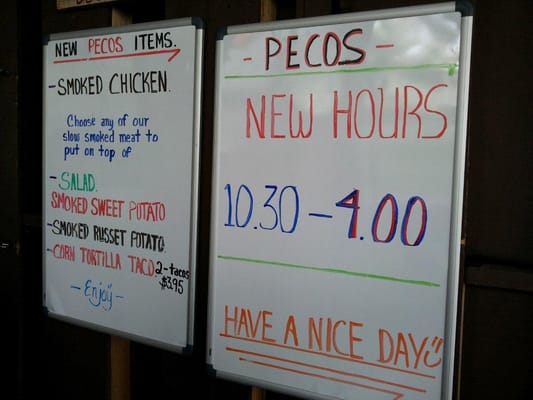 NEW PECOS ITEMS.
-SMOKED CHICKEN.
Choose any of our
slow smoked meat to
put on top of
-SALAD.
SMOKED SWEET POTATO
-SMOKED RUSSET POTATO.
-CORN TORTILLA TACO. 2-tacos
$3.95
-Enjoy-
-PECOS-
NEW HOURS
10.30-4.00
HAVE A NICE DAY